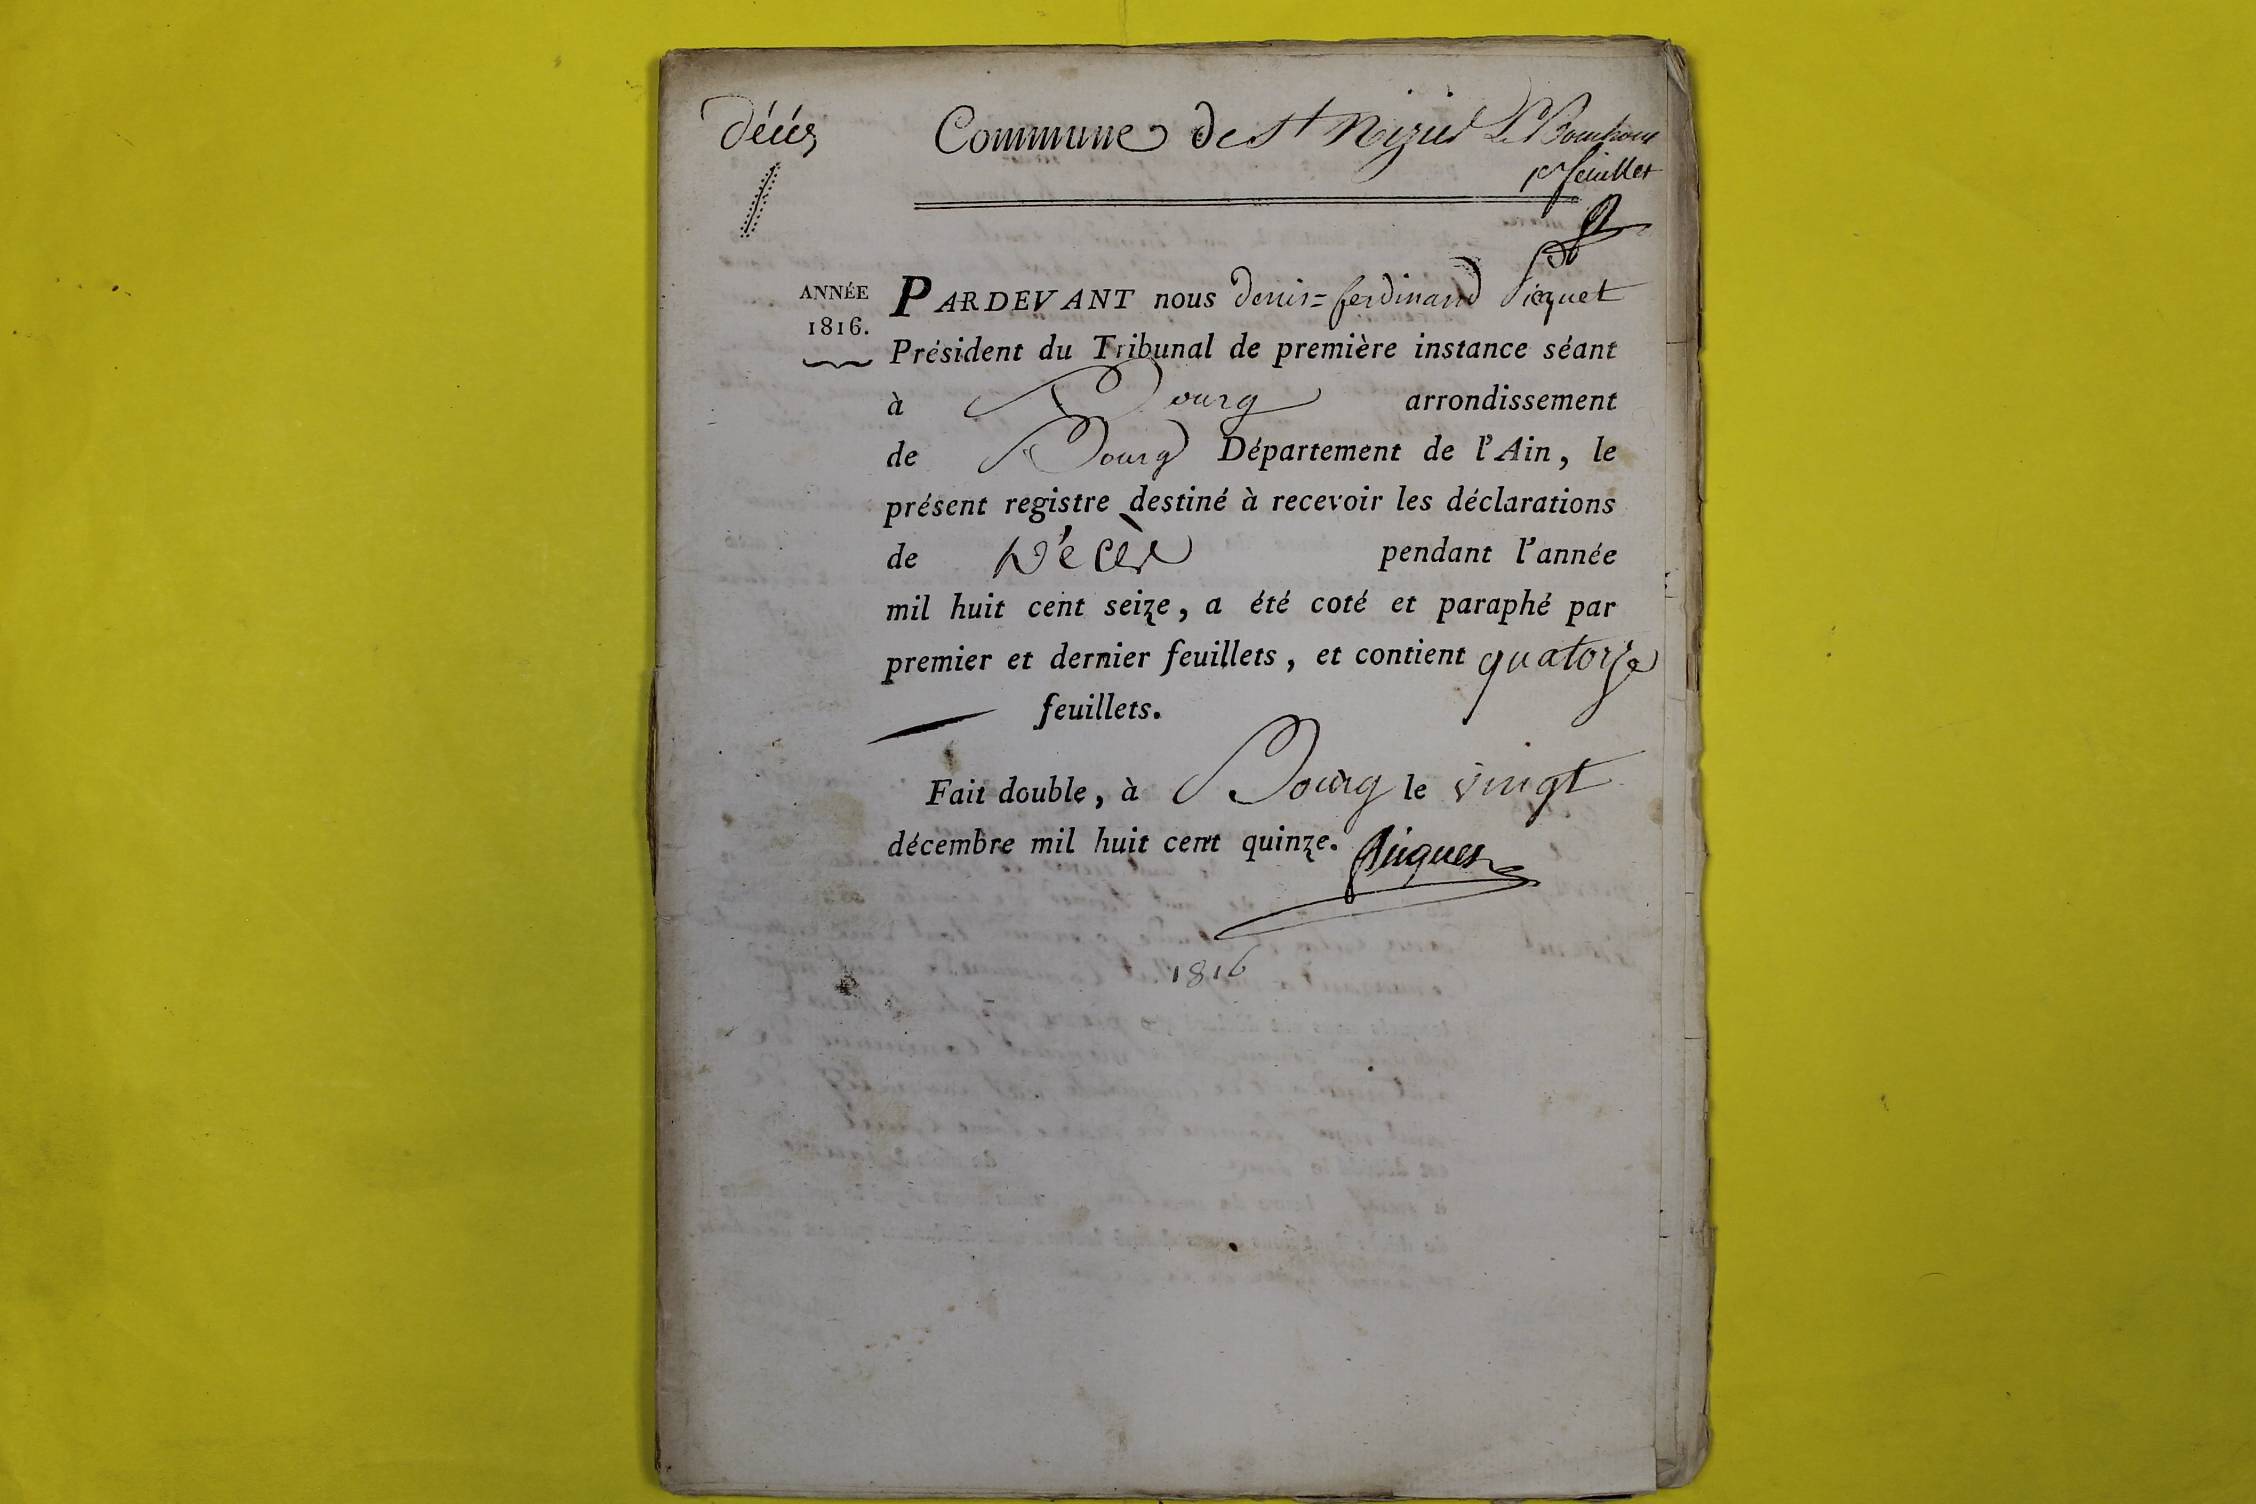 décès
Commune de St Nizier Le Bouchoux
1er feuillet
ANNÉE
1816.
PARDEVANT nous denis=ferdinand Picquet
Président du Tribunal de première instance séant
à Bourg arrondissement
de Bourg Département de l'Ain, le
présent registre destiné à recevoir les déclarations
de Décès pendant l'année
mil huit cent seize, a été coté et paraphé par
premier et dernier feuillets, et contient quatorze
feuillets.
Fait double, à Bourg le vingt
décembre mil huit cent quinze. Picquet
1816